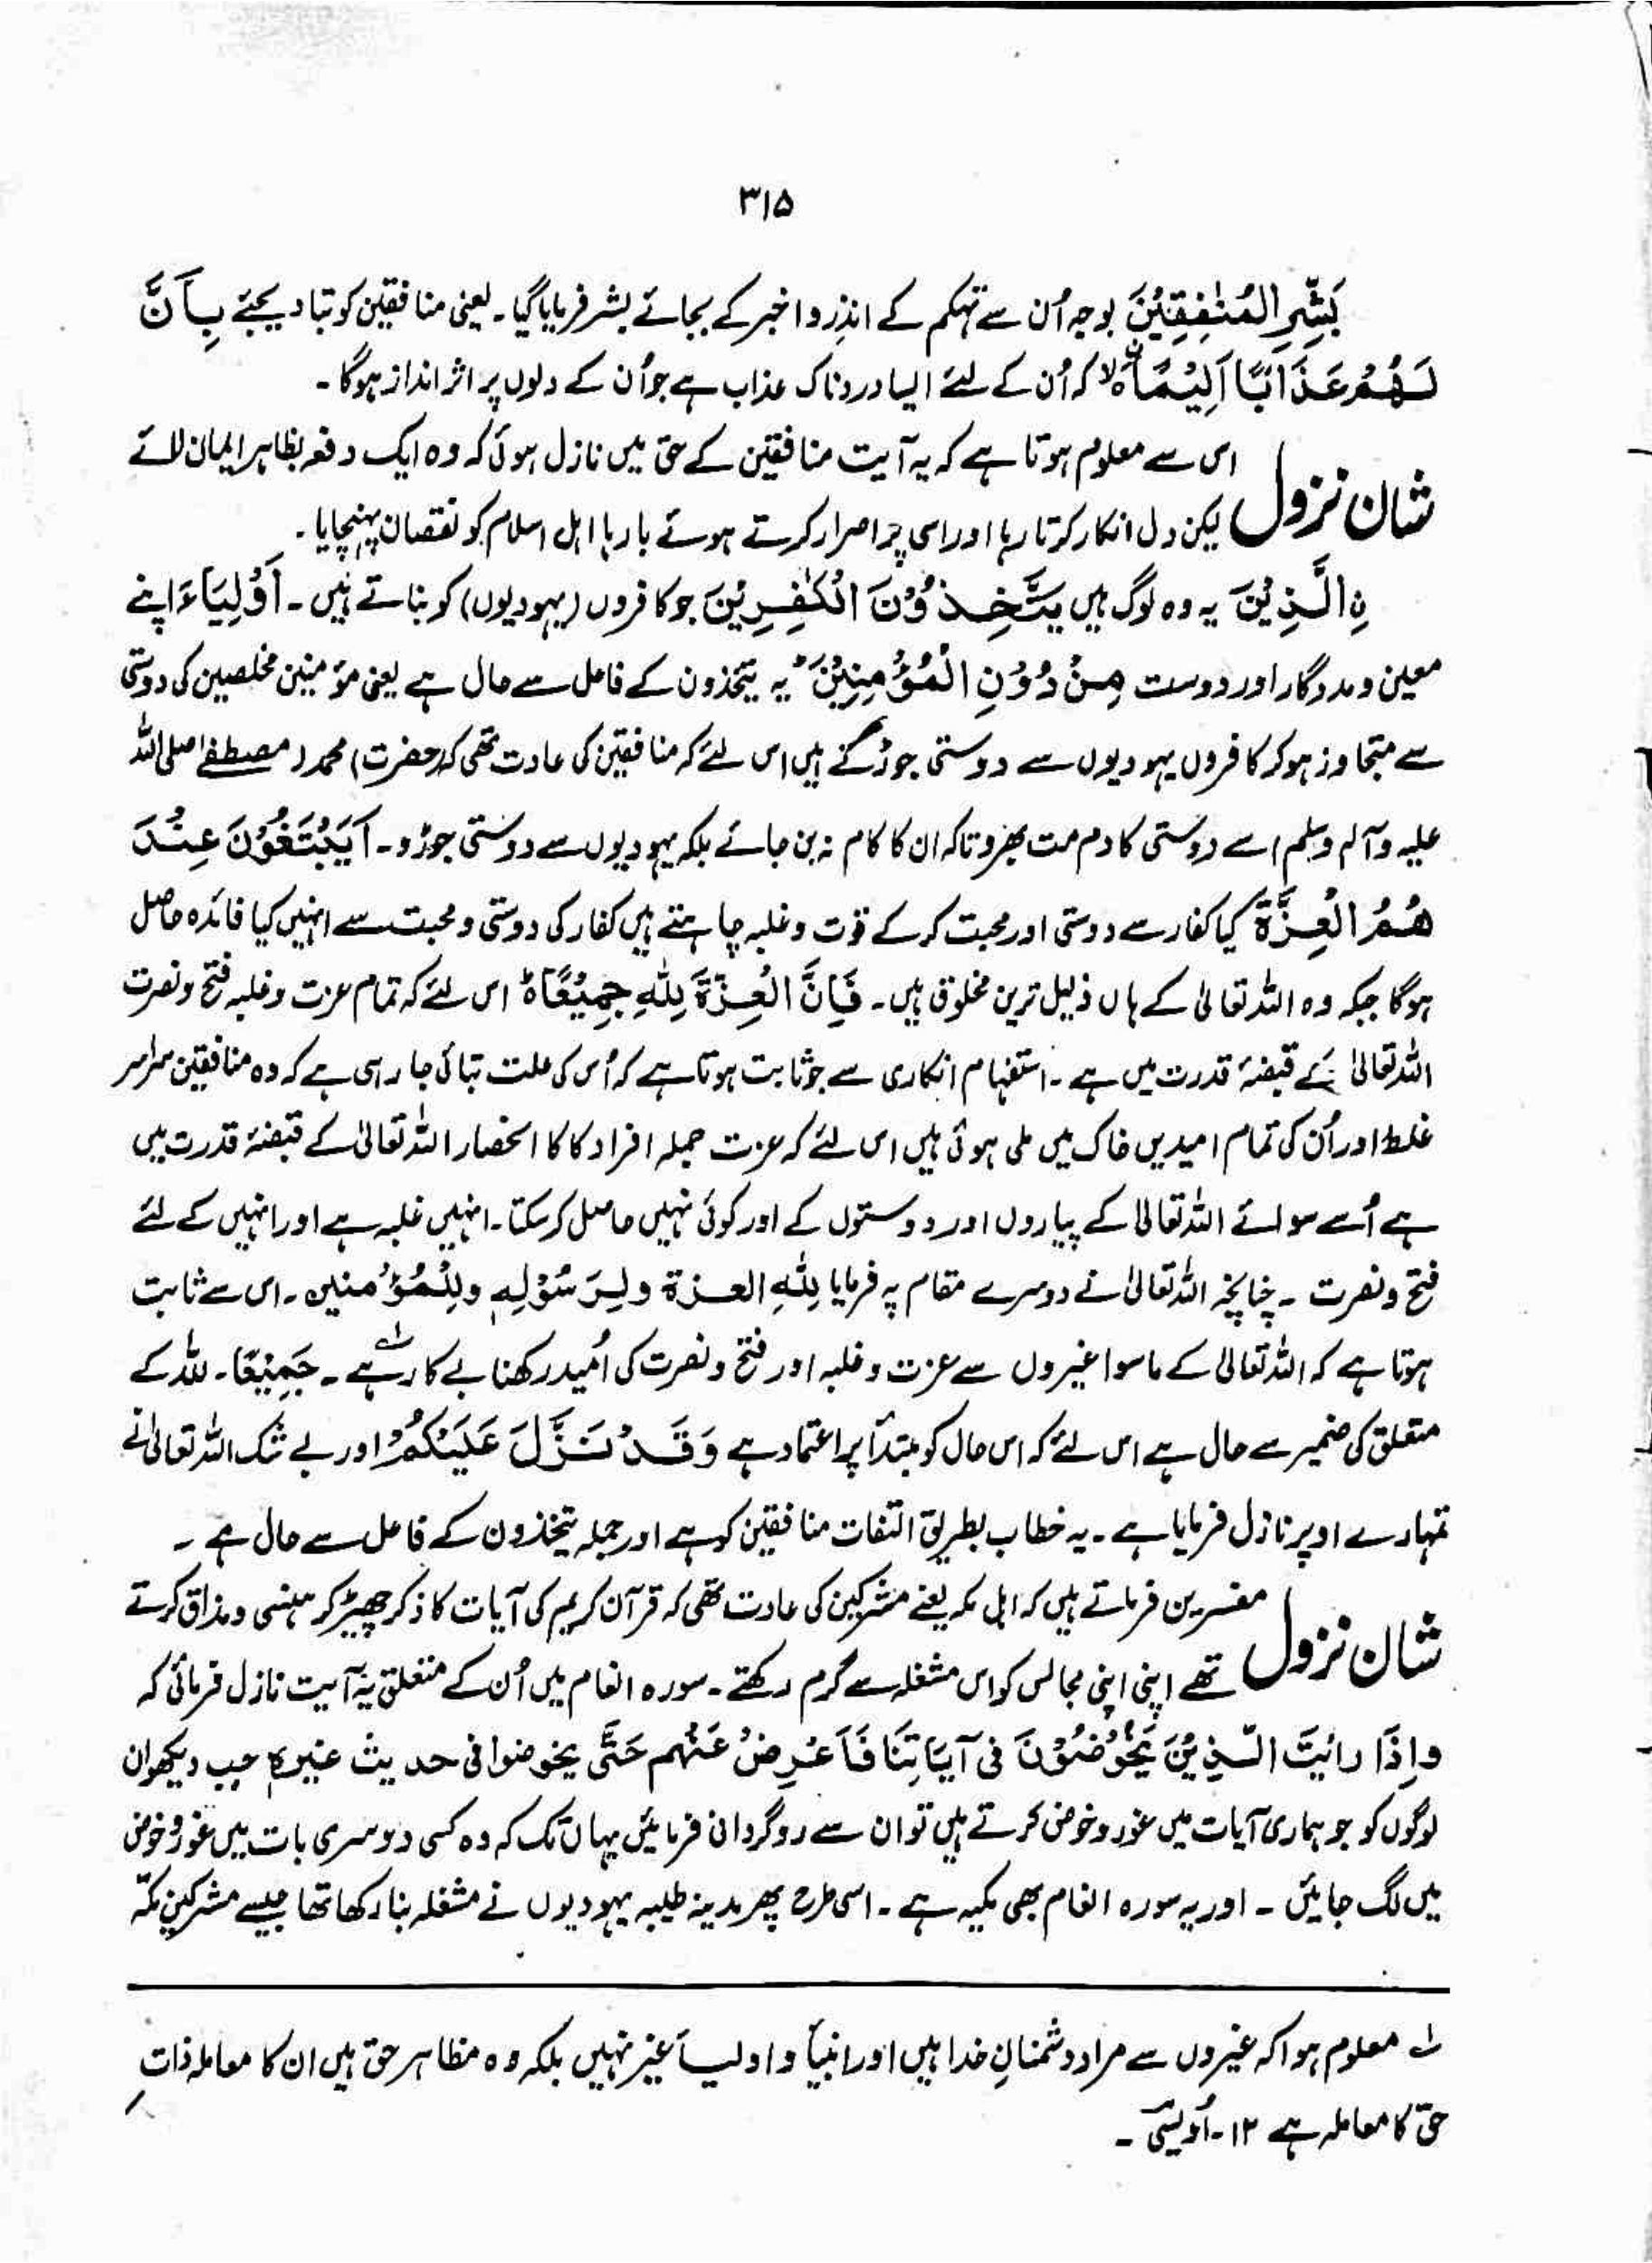 ۳۱۵
بَشِّرِ الْمُنٰفِقِيْنَ بوجہ اُن سے تہکم کے انذِر و اخبر کے بجائے بشر فرمایا گیا۔ یعنی منافقین کو بتا دیجئے بِاَنَّ
لَهُمْ عَذَابًا اَلِيْمًا ۙ کہ اُن کے لئے ایسا دردناک عذاب ہے جو اُن کے دلوں پر اثر انداز ہوگا۔
شان نزول اس سے معلوم ہوتا ہے کہ یہ آیت منافقین کے حق میں نازل ہوئی کہ وہ ایک دفعہ بظاہر ایمان لائے
لیکن دل انکار کرتا رہا اور اسی پر اصرار کرتے ہوئے بارہا اہل اسلام کو نقصان پہنچایا۔
نِ الَّذِيْنَ یہ وہ لوگ ہیں يَتَّخِذُوْنَ الْكٰفِرِيْنَ جو کافروں (یہودیوں) کو بناتے ہیں۔ اَوْلِيَاءَ اپنے
معین و مددگار اور دوست مِنْ دُوْنِ الْمُؤْمِنِيْنَ ؕ یہ یتخذون کے فاعل سے حال ہے یعنی مؤمنین مخلصین کی دوستی
سے متجاوز ہو کر کافروں یہودیوں سے دوستی جوڑ گئے ہیں اس لئے کہ منافقین کی عادت تھی کہ (حضرت) محمد (مصطفےٰ صلی اللہ
علیہ وآلہ وسلم) سے دوستی کا دم مت بھرو تاکہ ان کا کام نہ بن جائے بلکہ یہودیوں سے دوستی جوڑو۔ اَيَبْتَغُوْنَ عِنْدَ
هُمُ الْعِزَّةَ کیا کفار سے دوستی اور محبت کر کے قوت و غلبہ چاہتے ہیں کفار کی دوستی و محبت سے انہیں کیا فائدہ حاصل
ہوگا جبکہ وہ اللہ تعالیٰ کے ہاں ذلیل ترین مخلوق ہیں۔ فَاِنَّ الْعِزَّةَ لِلّٰهِ جَمِيْعًا ؕ اس لئے کہ تمام عزت و غلبہ فتح و نصرت
اللہ تعالیٰ کے قبضۂ قدرت میں ہے۔ استفہام انکاری سے جو ثابت ہوتا ہے کہ اُس کی علت بتائی جا رہی ہے کہ وہ منافقین سراسر
غلط اور اُن کی تمام امیدیں خاک میں ملی ہوئی ہیں اس لئے کہ عزت جملہ افراد کا کا انحصار اللہ تعالیٰ کے قبضۂ قدرت میں
ہے اُسے سوائے اللہ تعالیٰ کے پیاروں اور دوستوں کے اور کوئی نہیں حاصل کر سکتا۔ انہیں غلبہ ہے اور انہیں کے لئے
فتح و نصرت ۔ چنانچہ اللہ تعالیٰ نے دوسرے مقام پہ فرمایا لِلّٰهِ العزۃ ولِرَسُوْلِهٖ ولِلْمُؤْمنین۔ اس سے ثابت
ہوتا ہے کہ اللہ تعالیٰ کے ماسوا غیروں سے عزت و غلبہ اور فتح و نصرت کی اُمید رکھنا بے کار ہے ؂۱۔ جَمِيْعًا۔ للہ کے
متعلق کی ضمیر سے حال ہے اس لئے کہ اس حال کو مبتدأ پر اعتماد ہے وَقَدْ نَزَّلَ عَلَيْكُمْ اور بے شک اللہ تعالیٰ نے
تمہارے اوپر نازل فرمایا ہے۔ یہ خطاب بطریق التفات منافقین کو ہے اور جملہ یتخذون کے فاعل سے حال ہے ۔
شان نزول مفسرین فرماتے ہیں کہ اہل مکہ یعنے مشرکین کی عادت تھی کہ قرآن کریم کی آیات کا ذکر چھیڑ کر ہنسی و مذاق کرتے
تھے اپنی اپنی مجالس کو اس مشغلہ سے گرم رکھتے۔ سورہ انعام میں اُن کے متعلق یہ آیت نازل فرمائی کہ
واِذَا رائيتَ الّذِيْنَ يَخُوْضُوْنَ فی آيَاتِنَا فَاَعْرِضْ عَنْهُم حَتّٰى يخوضوا فی حديث غيرهٖ جب دیکھو ان
لوگوں کو جو ہماری آیات میں غور و خوض کرتے ہیں تو ان سے روگردانی فرمائیں یہاں تک کہ وہ کسی دوسری بات میں غور و خوض
میں لگ جائیں ۔ اور یہ سورہ انعام بھی مکیہ ہے۔ اسی طرح پھر مدینہ طیبہ یہودیوں نے مشغلہ بنا رکھا تھا جیسے مشرکینِ مکّہ
؂۱ معلوم ہوا کہ غیروں سے مراد دشمنانِ خدا ہیں اور انبیأ و اولیأ غیر نہیں بلکہ وہ مظاہر حق ہیں ان کا معاملہ ذاتِ
حق کا معاملہ ہے ۱۲۔ اُویسی ۔